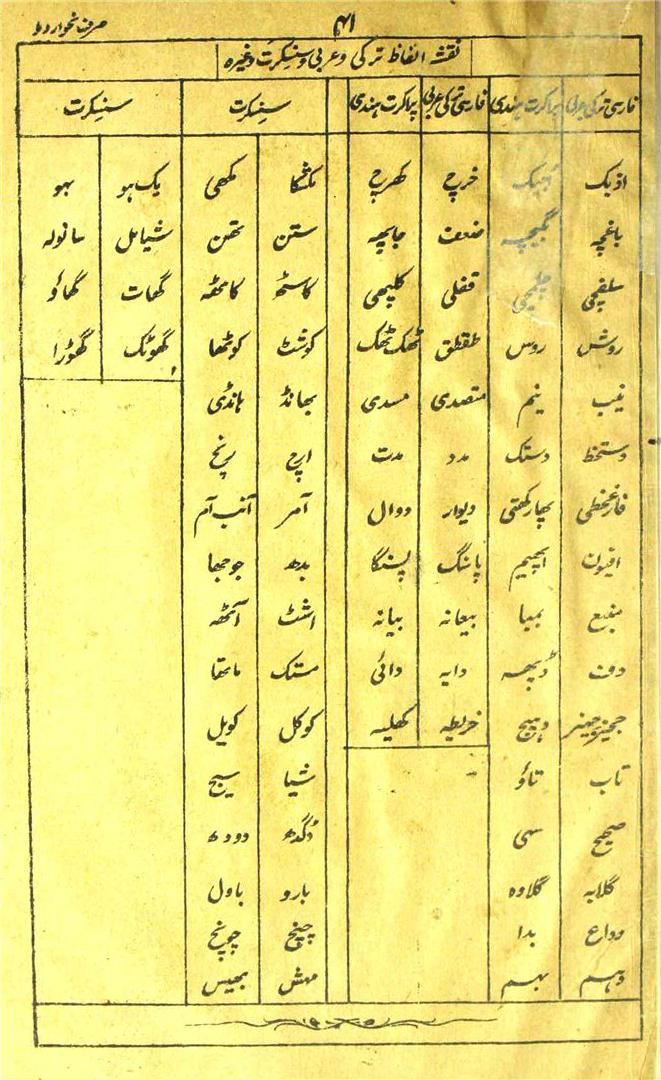 صرف نحو اردو ۴۱
نقشہ الفاظ ترکی و عربی و سنسکرت وغیرہ
فارسی ترکی عربی پراکرت ہندی فارسی ترکی عربی پراکرت ہندی سنسکرت سنسکرت
ازبک خرچ کھرچ مکشکا مکھی یک ہو بہو
باغچہ بگیچہ ضعف جابچہ ستن تھن شیامل سانولہ
سلفچی چلمچی قفلی کلپھی کاسٹھ کاٹھہ گھات گھاؤ
روش روس طقطق ٹھک ٹھک کوشٹ کوٹھا گھوٹک گھوڑا
نیب نیم متصدی مسدی بھانڈ ہانڈی
دستخط دستک مدد مدت ارچ
فارغخطی پھارکھتی دیوار دووال آمر آنب آم
افیون اپھیم پاسنگ پسنگا بدھ جوجھا
منبع بمبا بیعانہ بیانہ اشٹ آٹھہ
دف ڈپھہ دایہ دائی مستک ماتھا
دہیج خریطہ کھلیہ کوکل کویل
تاب تاؤ شیا سیج
صحیح سہی دگدھ دودھ
گلابہ گلاوہ بارو باول
وداع بدا چنچ چونچ
وہم بہم مہش بھیس